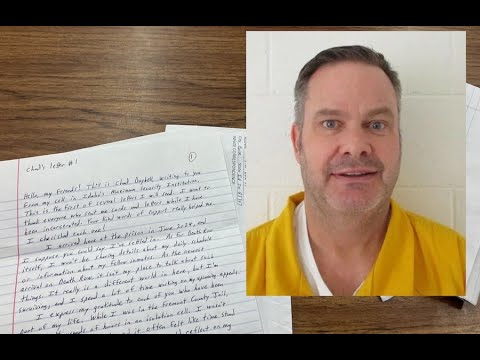 Chad's letter #1
1
Hello, my Friends! This is Chad Daybell writing to you
from my cell in Idaho's Maximum Security Institution.
This is the first of several letters I will send. I want to
thank everyone who sent me cards and letters while I have
been incarcerated. Your kind words of support really helped me.
I cherished each one!
I arrived here at the prison in June 2024, and
I suppose you could say I'm settled in. As for Death Row
itself, I won't be sharing details about my daily schedule
or information about my fellow inmates. As the newest
arrival on Death Row, it isn't my place to talk about such
things. It really is a different world in here, but I'm
surviving, and I spend a lot of time working on my upcoming appeals.
I express my gratitude to each of you who have been
part of my life. While I was in the Fremont County Jail,
thousands of hours in an isolation cell, I wasn't
it often felt like time stood
reflect on my